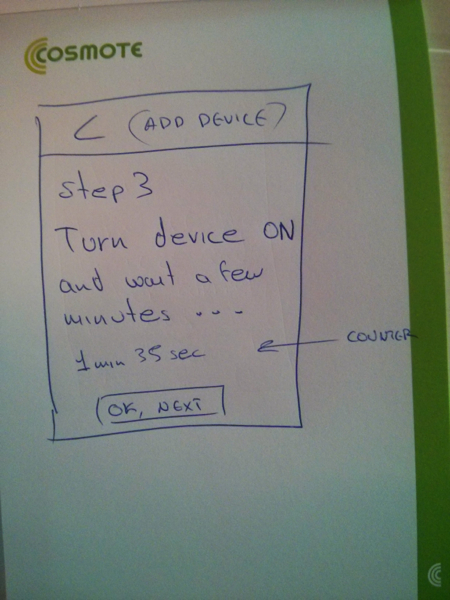 COSMOTE
< (ADD DEVICE)
Step 3
Turn device ON
and wait a few
minutes ...
1 min 35 sec
COUNTER
OK, NEXT